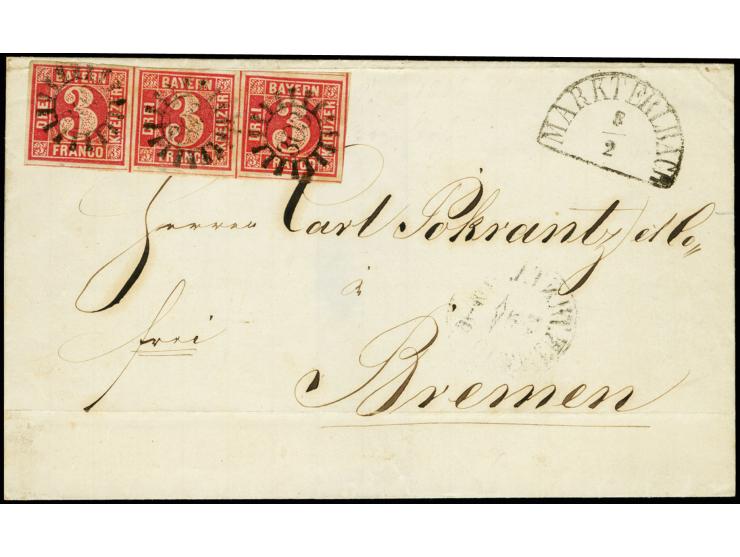 BAYERN
DREI 3 KREUZER
FRANCO
BAYERN
DREI 3 KREUZER
FRANCO
BAYERN
DREI 3 KREUZER
FRANCO
MARKT ERLBACH
8
2
Herren Carl Pokrantz & Co
à
frei
Bremen